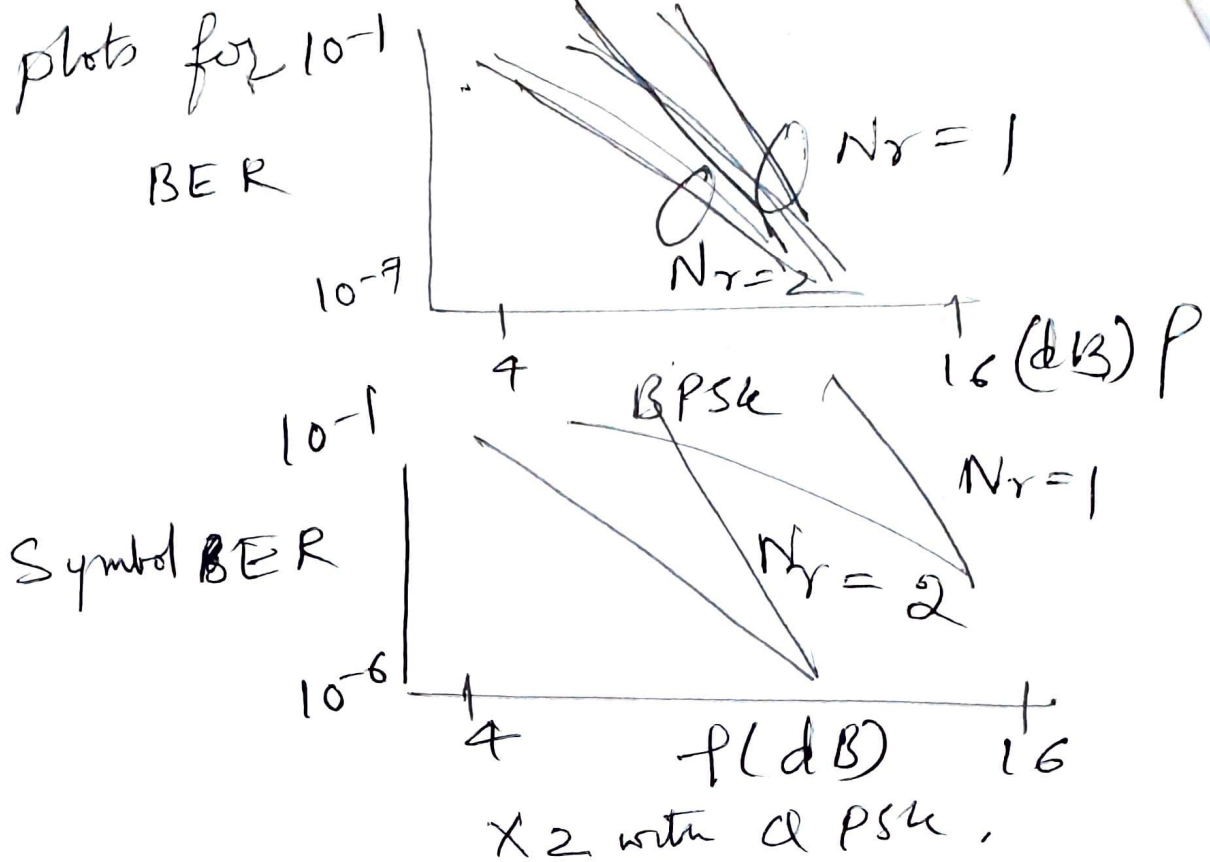 plots for 10-1
BER
Nr = 1
Nr = 2
10-7
4
16 (dB) ρ
BPSK
10-1
Nr = 1
Symbol BER
Nr = 2
10-6
4
ρ(dB)
16
X2 with QPSK,